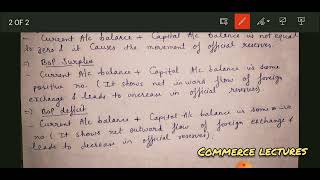 2 OF 2
- Current A/c balance + Capital A/c balance is not equal
to zero & it causes the movement of official reserves.
=) BoP Surplus
- Current A/c balance + Capital A/c balance is some
positive no. ( It shows net inward flow of foreign
exchange & leads to increase in official reserves)
=) BoP deficit
- Current A/c balance + Capital A/c balance is some -ve
no. ( It shows net outward flow of foreign exchange &
leads to decrease in official reserves).
COMMERCE LECTURES